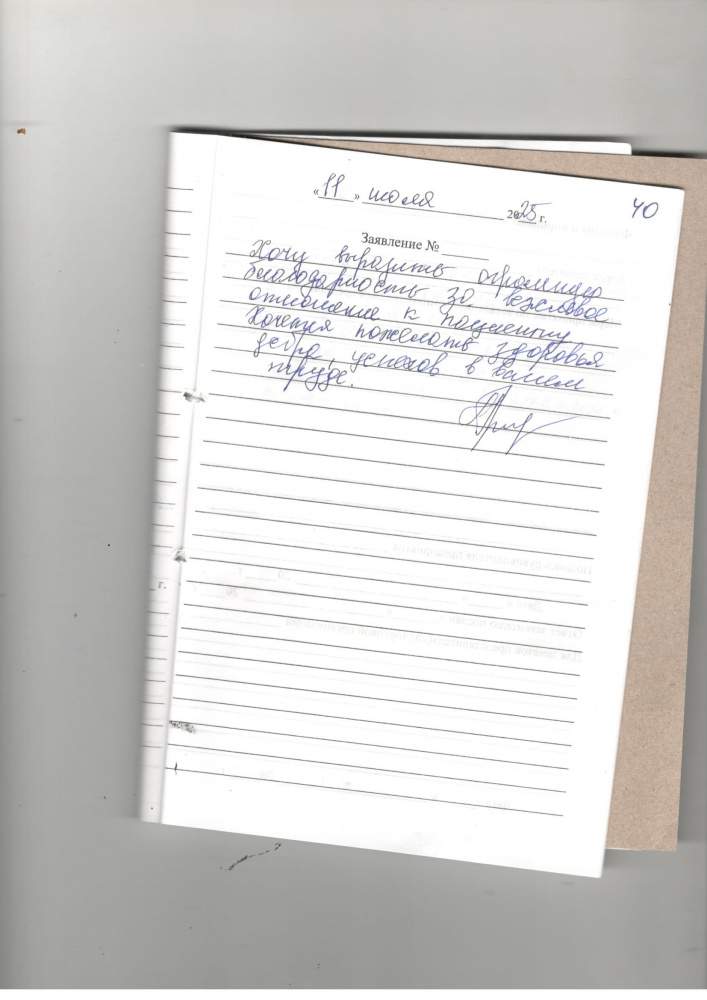 « 11 » июля 2025 г.
40
Заявление №
Хочу выразить огромную
благодарность за вежливое
отношение к пациенту
Хочется пожелать здоровья
добра, успехов в вашем
труде.
г.